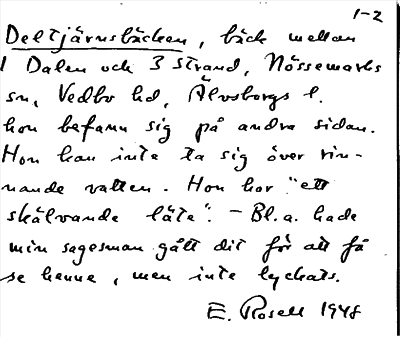 1-2
Deltjärnsbäcken, bäck mellan
1 Dalen och 3 Strand, Nössemarks
sn, Vedbo hd, Älvsborgs l.
hon befann sig på andra sidan.
Hon kan inte ta sig över rin-
nande vatten. Hon har "ett
skälvande läte". - Bl.a. hade
min sagesman gått dit för att få
se henne, men inte lyckats.
E. Rosell 1948